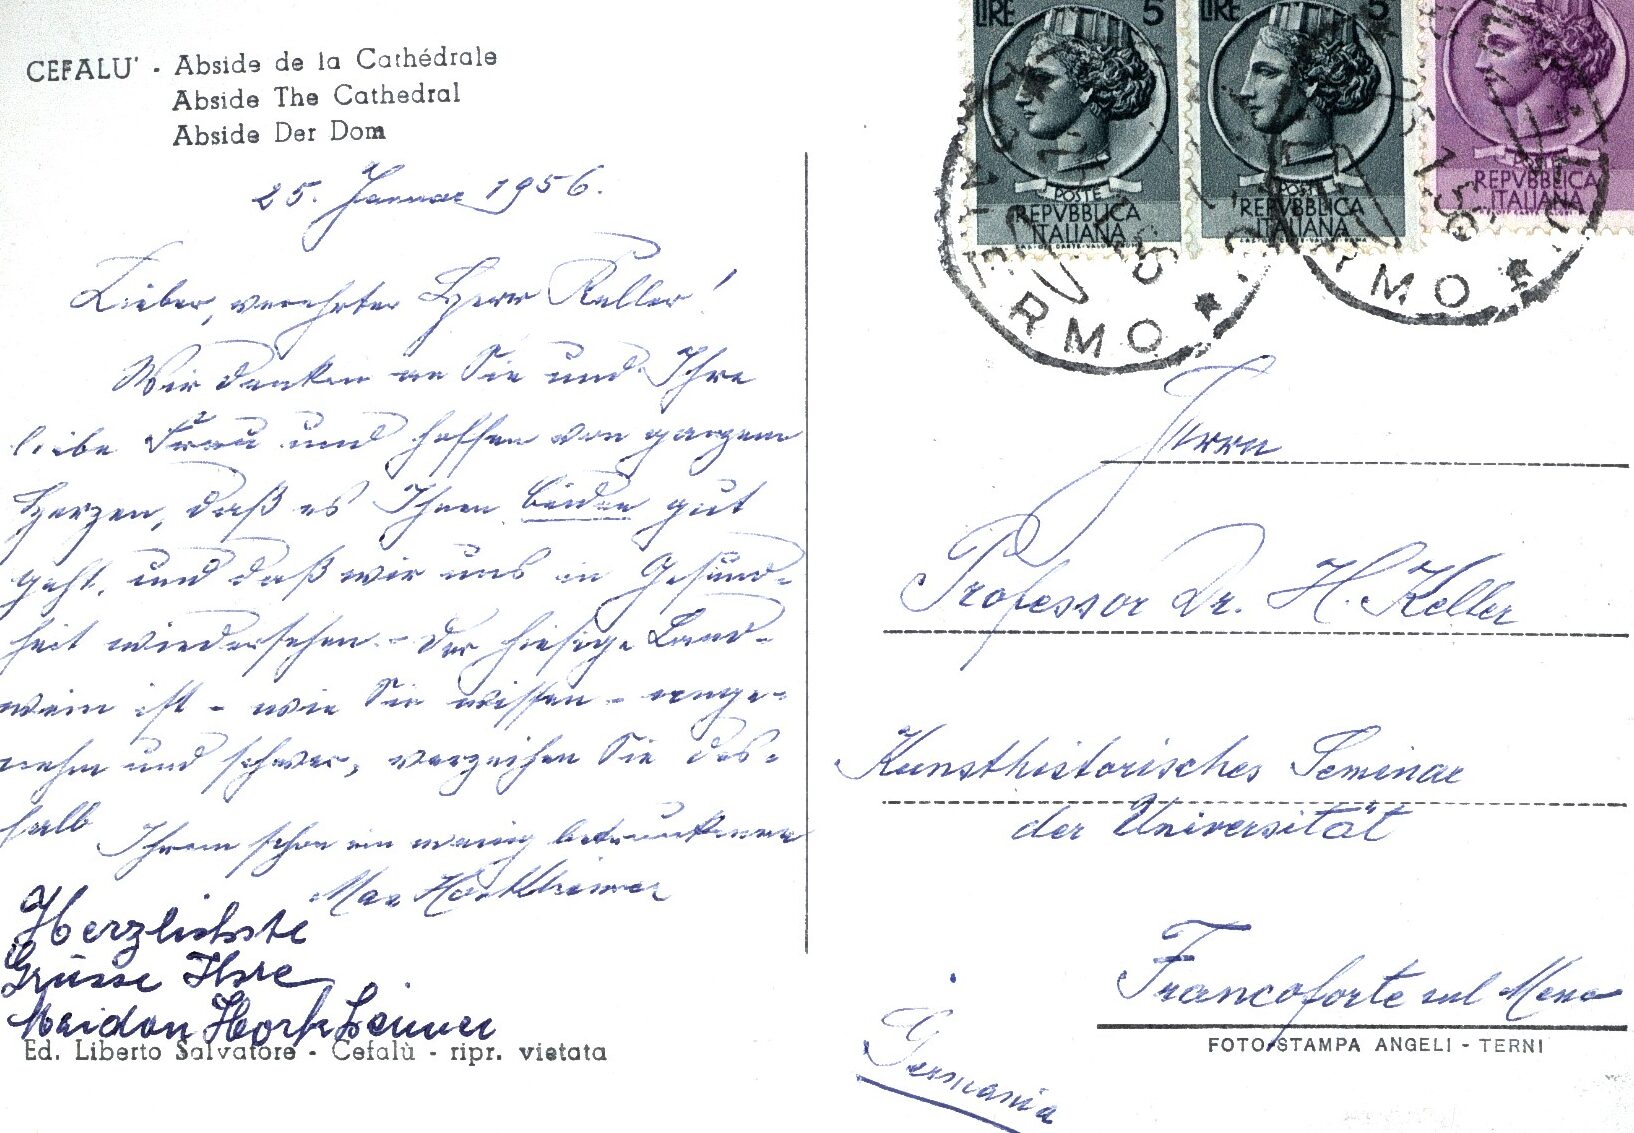 CEFALU' - Abside de la Cathédrale
Abside The Cathedral
Abside Der Dom
25. Januar 1956.
Lieber, verehrter Herr Keller!
Wir denken an Sie und Ihre
liebe Frau und hoffen von ganzem
Herzen, daß es Ihnen beiden gut
geht, und daß wir uns in Gesund-
heit wiedersehen. - Der hiesige Land-
wein ist - wie Sie wissen - ange-
nehm und schwer, verzeihen Sie des-
halb
Ihrem schon ein wenig betrunkenen
Max Horkheimer
Herzlichste
Grüsse Ihre
Maidon Horkheimer
Ed. Liberto Salvatore - Cefalù - ripr. vietata
LIRE 5
POSTE
REPVBBLICA
ITALIANA
LIRE 5
POSTE
REPVBBLICA
ITALIANA
POSTE
REPVBBLICA
ITALIANA
Herrn
Professor Dr. H. Keller
Kunsthistorisches Seminar
der Universität
Francoforte sul Meno
Germania
FOTO/STAMPA ANGELI - TERNI